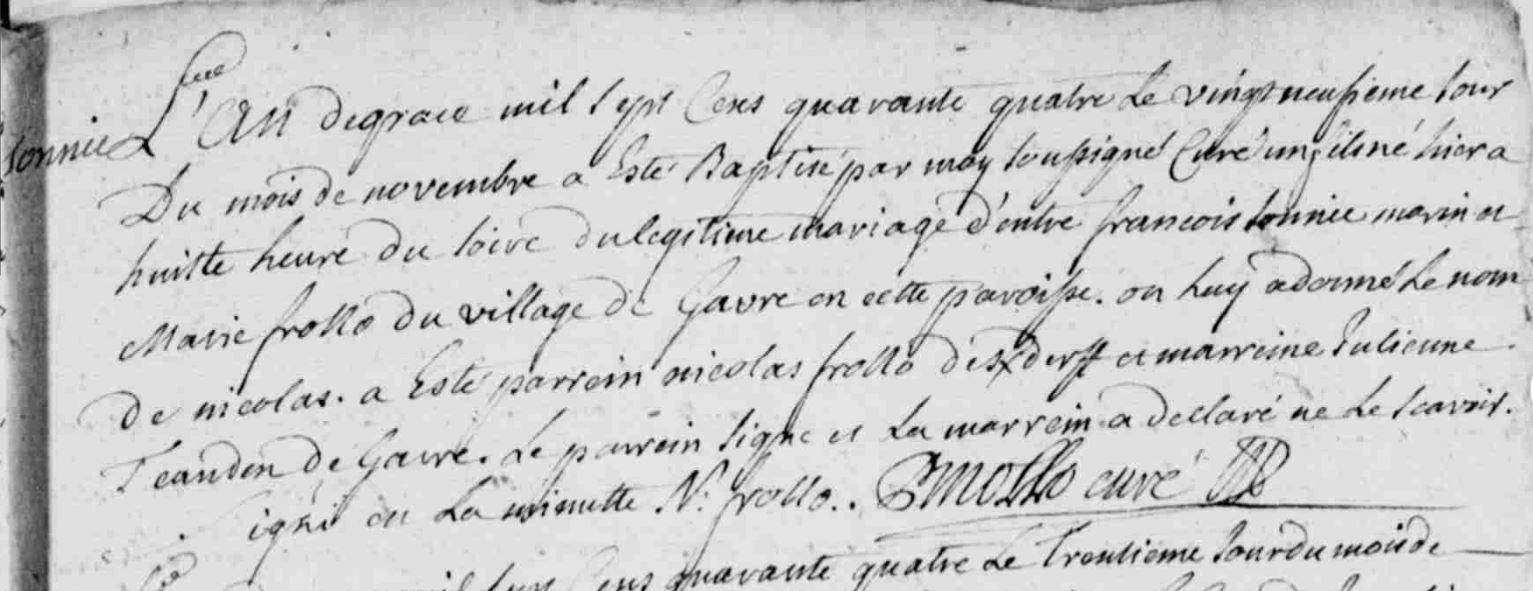 Tonnie
L'An degrace mil sept Cens quarante quatre Le vingtneufieme jour
Du mois de novembre a Esté Baptisé par moy soussigné Curé un fils né hier a
huitte heure du soire du legitime mariage d'entre francois tonnie marin et
Marie frollo du village de Gavre en cette paroisse. on luy a donné Le nom
de nicolas. a Esté parrein nicolas frollo de et marreine Julienne
Jeanden de Gavre. Le parrein signe et La marrein a declaré ne Le scavoir.
signé en La minutte N. frollo.. curé
mil sept Cens quarante quatre Le Trentieme jour du mois de